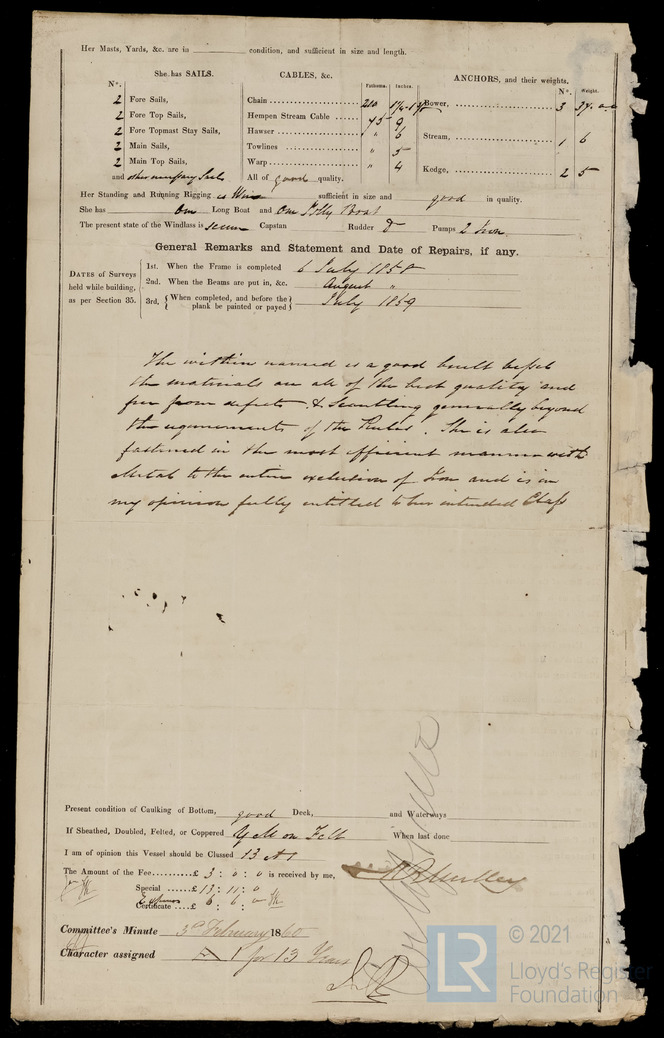 Her Masts, Yards, &c. are in condition, and sufficient in size and length.
She has SAILS.
CABLES, &c.
ANCHORS, and their weights.
N°.
Fathoms.
Inches.
N°.
Weight.
2 Fore Sails,
2 Fore Top Sails,
2 Fore Topmast Stay Sails,
2 Main Sails,
2 Main Top Sails,
and other necessary Sails
Chain 210
Hempen Stream Cable 75 9
Hawser " 6
Towlines " 5
Warp " 4
All of good quality.
Bower, 3
Stream, 1 6
Kedge, 2 5
Her Standing and Running Rigging is Wire sufficient in size and good in quality.
She has One Long Boat and One Jolly Boat
The present state of the Windlass is Capstan Rudder Pumps 2 Iron
General Remarks and Statement and Date of Repairs, if any.
DATES of Surveys held while building, as per Section 35.
1st. When the Frame is completed 6 July 1858
2nd. When the Beams are put in, &c. August "
3rd, {When completed, and before the plank be painted or payed} July 1859
The within named is a good built vessel
the materials are all of the best quality and
free from defects & Scantling generally beyond
the requirements of the Rules. She is also
fastened in the most efficient manner with
Metal to the entire exclusion of Iron and is in
my opinion fully entitled to her intended Class
Present condition of Caulking of Bottom, good Deck, and Waterways
If Sheathed, Doubled, Felted, or Coppered Y M on Felt When last done
I am of opinion this Vessel should be Classed 13 A1
The Amount of the Fee £ 3 : 0 : 0 is received by me,
Special £ 13 : 11 : 0
Certificate £ 6 : 6
Committee's Minute 3d February 1860
Character assigned A 1 for 13 Years
LR
© 2021
Lloyd's Register
Foundation